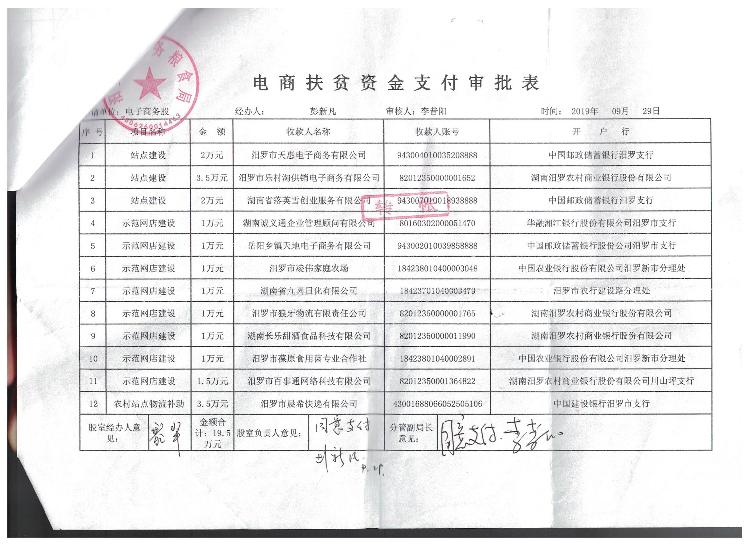 电商扶贫资金支付审批表
请单位：电子商务股 经办人： 彭新凡 审核人：李普阳 时间： 2019年 09月 29日
序号 项目名称 金 额 收款人名称 收款人账号 开 户 行
1 站点建设 2万元 汨罗市天惠电子商务有限公司 943004010035208888 中国邮政储蓄银行汨罗支行
2 站点建设 3.5万元 汨罗市乐村淘供销电子商务有限公司 82012350000001652 湖南汨罗农村商业银行股份有限公司
3 站点建设 2万元 湖南省落英吉创业服务有限公司 943007010018938888 中国邮政储蓄银行汨罗支行
4 示范网店建设 1万元 湖南诚文通企业管理顾问有限公司 80160302000051470 华融湘江银行股份有限公司汨罗市支行
5 示范网店建设 1万元 岳阳乡镇天地电子商务有限公司 943002010039858888 中国邮政储蓄银行股份公司汨罗市支行
6 示范网店建设 1万元 汨罗市凌伟家庭农场 18423801040003048 中国农业银行股份有限公司汨罗新市分理处
7 示范网店建设 1万元 湖南省九喜日化有限公司 18423701040003479 汨罗市农行建设路分理处
8 示范网店建设 1万元 汨罗市狼牙物流有限责任公司 82012350000001765 湖南汨罗农村商业银行股份有限公司
9 示范网店建设 1万元 湖南长乐甜酒食品科技有限公司 82012350000011990 湖南汨罗农村商业银行股份有限公司
10 示范网店建设 1万元 汨罗市葆原食用菌专业合作社 18423801040002891 中国农业银行股份有限公司汨罗新市分理处
11 示范网店建设 1.5万元 汨罗市百事通网络科技有限公司 82012350001364822 湖南汨罗农村商业银行股份有限公司川山坪支行
12 农村站点物流补助 3.5万元 汨罗市晨希快递有限公司 43001688066052505106 中国建设银行汨罗市支行
股室经办人意见： 金额合计：19.5万元 股室负责人意见： 同意支付 分管副局长意见： 同意支付